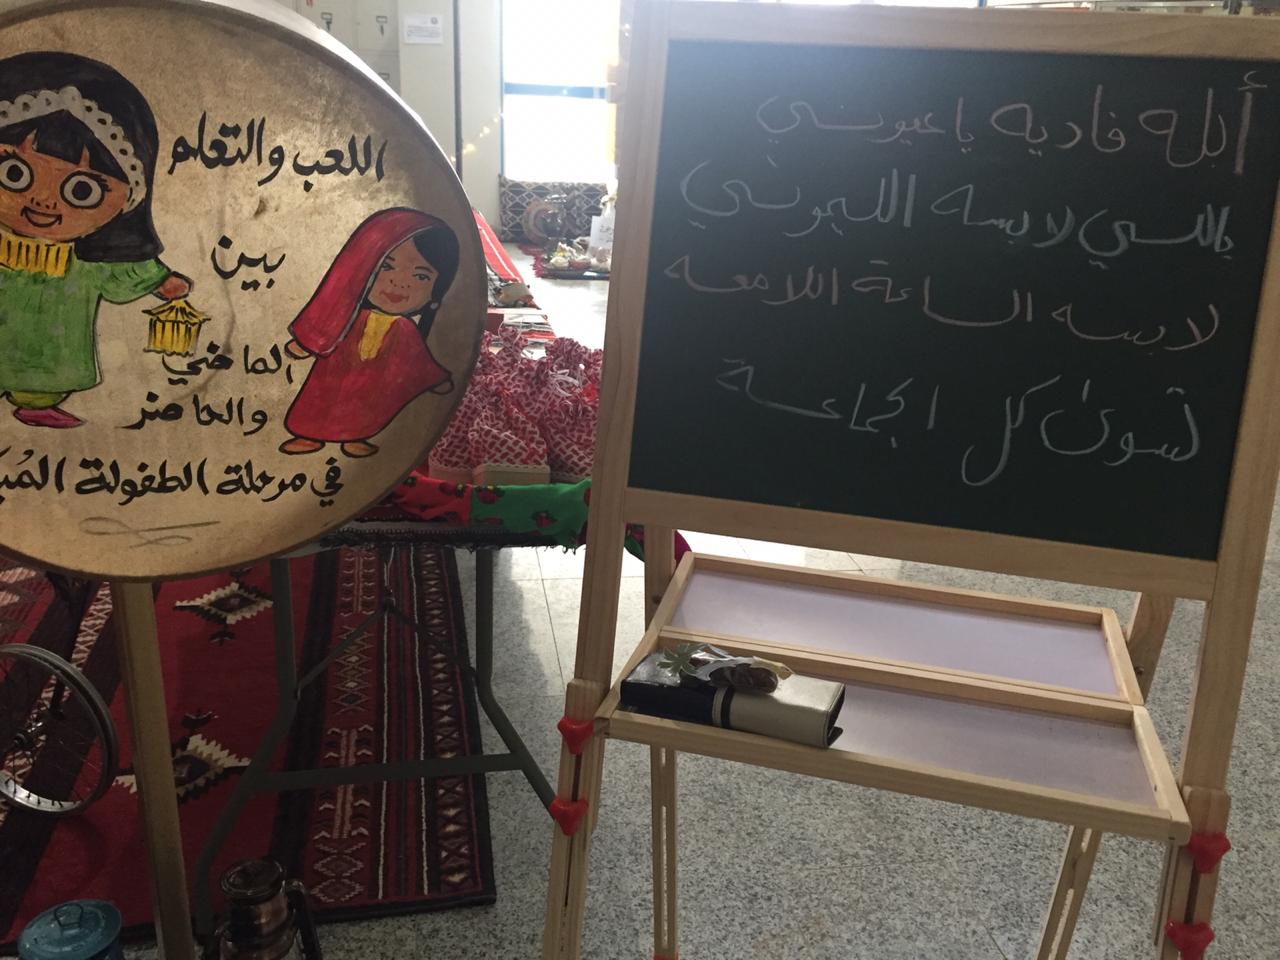 اللعب والتعلم
بين
الماضي
والحاضر
في مرحلة الطفولة
أبله فاديه ياعيوني
ياللي لابسه الليموني
لابسه الساعة اللامعه
تسوىٰ كل الجماعة